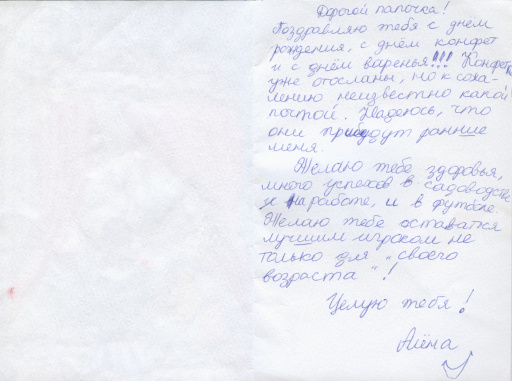 Дорогой папочка!
Поздравляю тебя с днём
рождения, с днём конфет
и с днём варенья!!! Конфеты
уже отосланы, но к сожа-
лению неизвестно какой
почтой. Надеюсь, что
они придут раньше
меня.
Желаю тебе здоровья,
много успехов в садоводстве
и на работе, и в футболе.
Желаю тебе оставаться
лучшим игроком не
только для "своего
возраста"!
Целую тебя!
Алёна